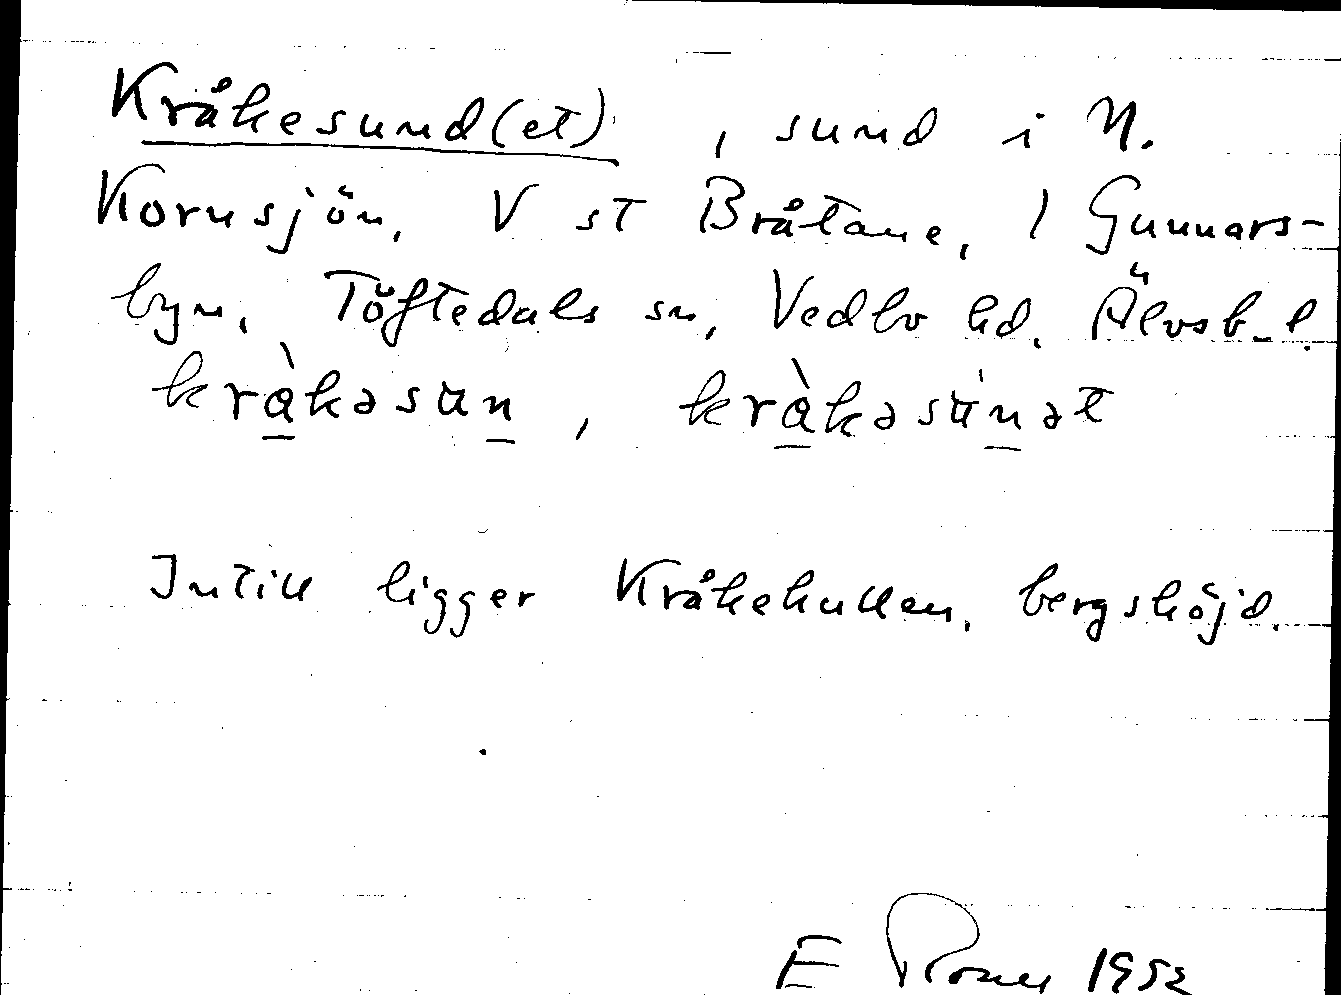 Kråkesund(et), sund i N.
Kornsjön, V st Bråtane, 1 Gunnars-
byn, Töftedals sn, Vedbo hd. Älvsb. l.
kràkəsun, kràkəsunət
Intill ligger Kråkekullen, bergshöjd.
E 1952